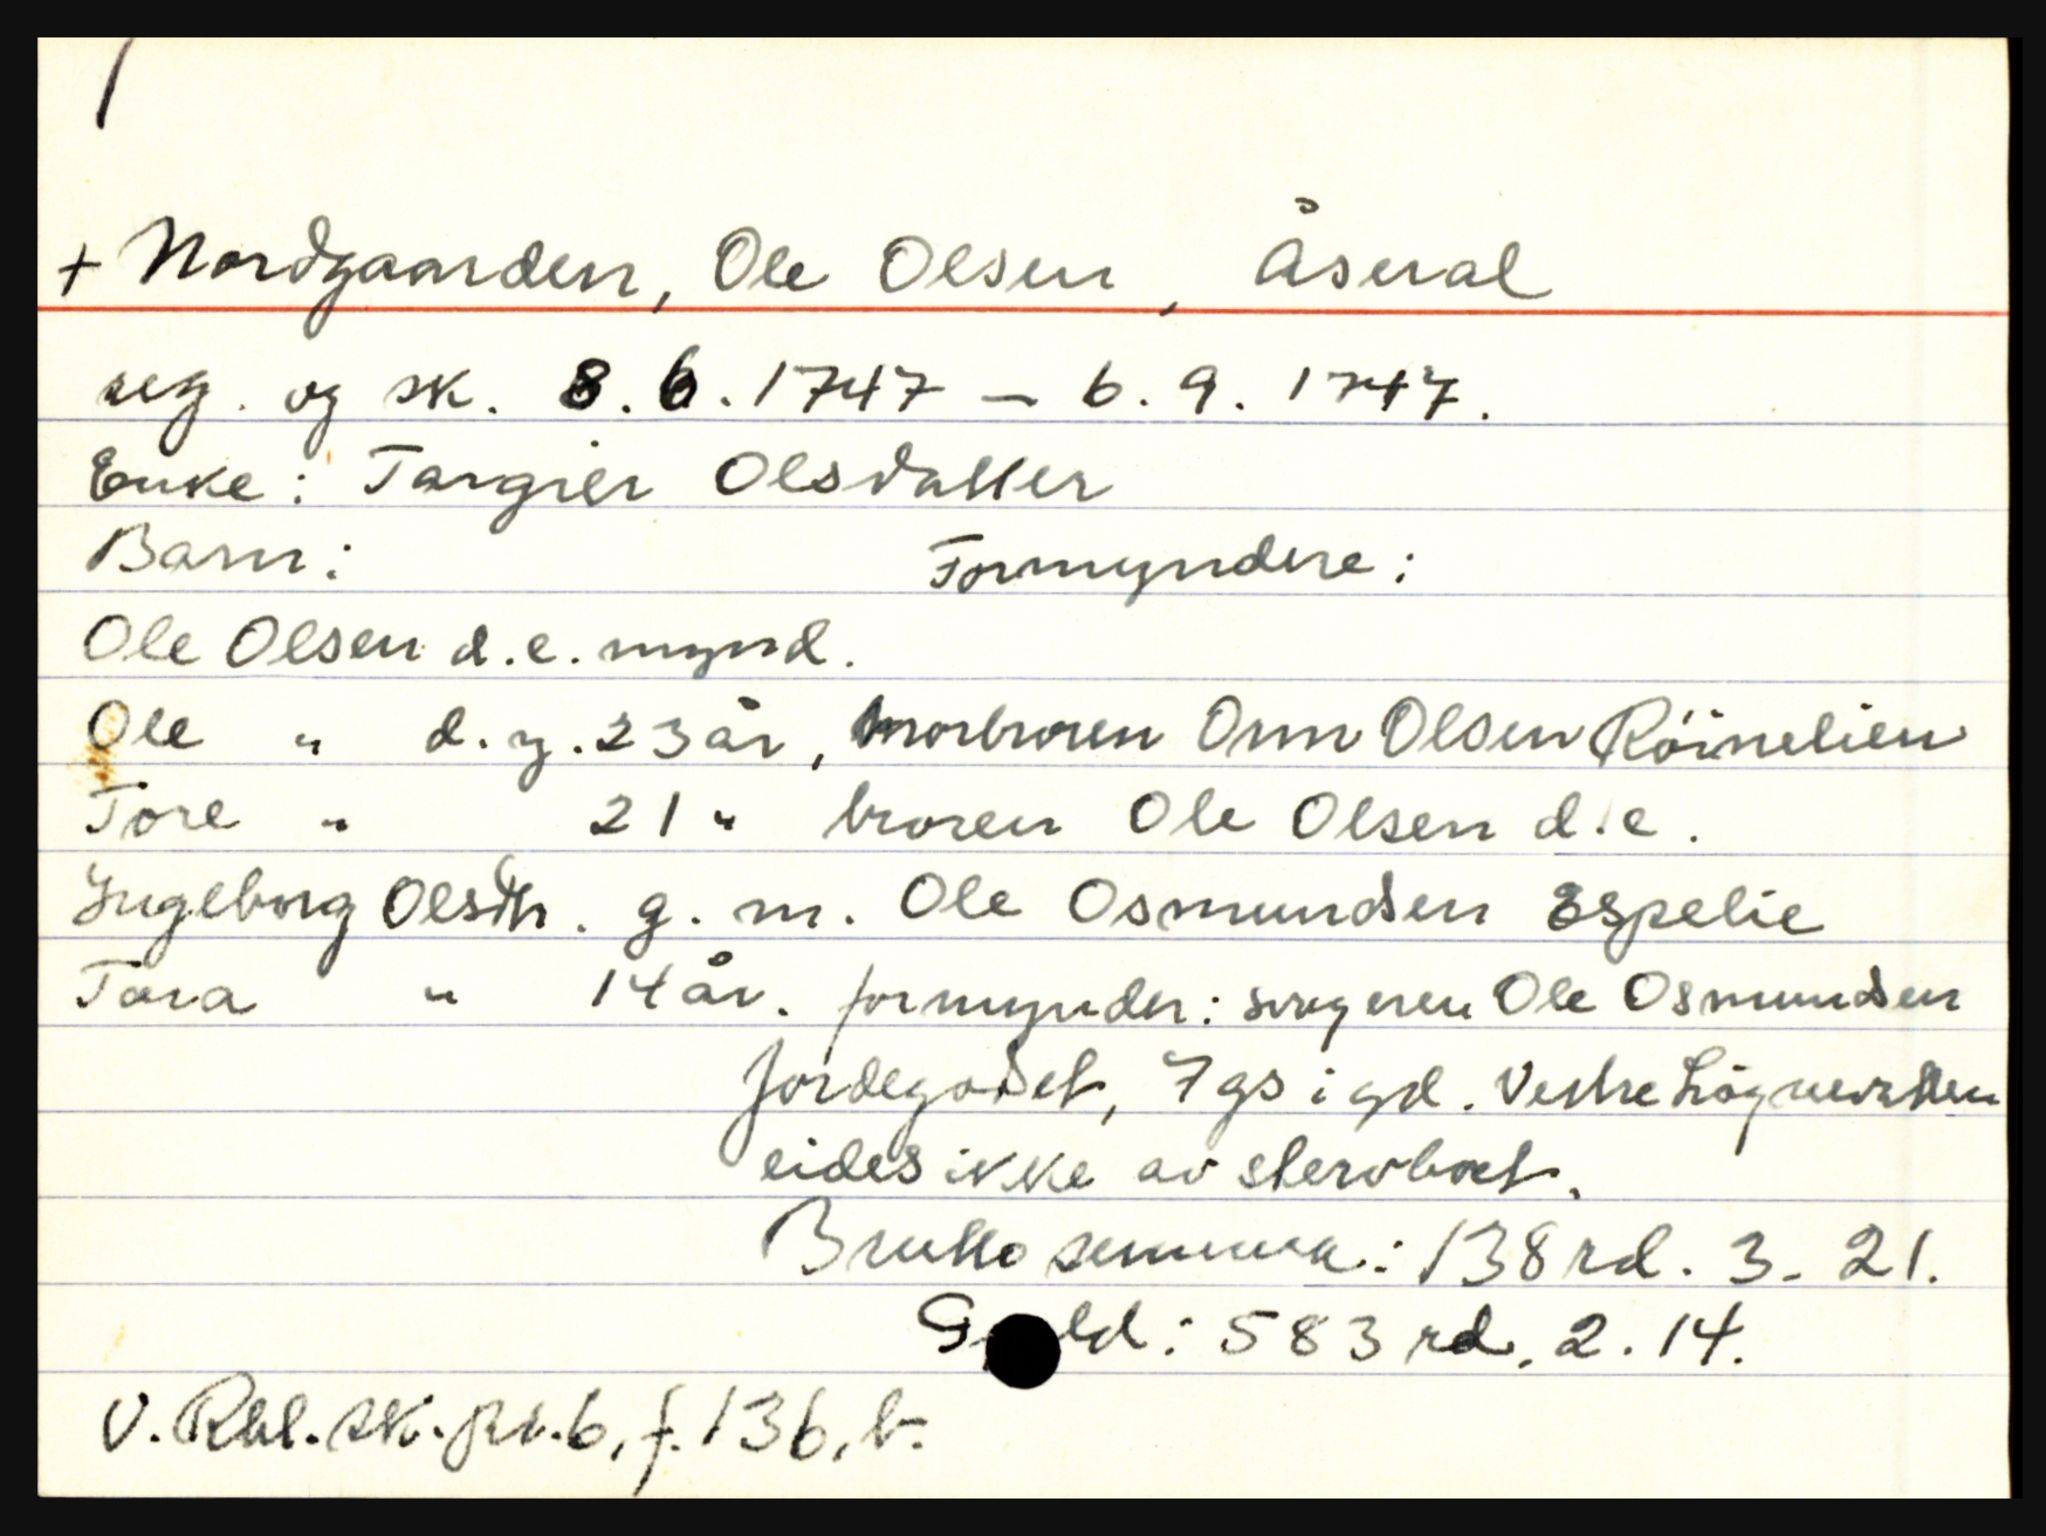 + Nordgaarden, Ole Olsen, Åseral
reg. og sk. 8.6.1747 – 6.9.1747.
Enke: Targier Olsdatter
Barn: Formyndere:
Ole Olsen d.e. mynd.
Ole " d.y. 23 år, morbroren Onn Olsen Röinelien
Tore " 21 " broren Ole Olsen d.e.
Ingeborg Olsdtr. g.m. Ole Osmundsen Espelie
Tora " 14 år. formynder: svogeren Ole Osmundsen
Jordegodset, 7 gs i gd. Vestre
eides ikke av stervboet.
Brutto summa: 138 rd. 3. 21.
Gjeld: 583 rd. 2. 14.
V. Rbl. sk. pr. 6, f. 136, b.